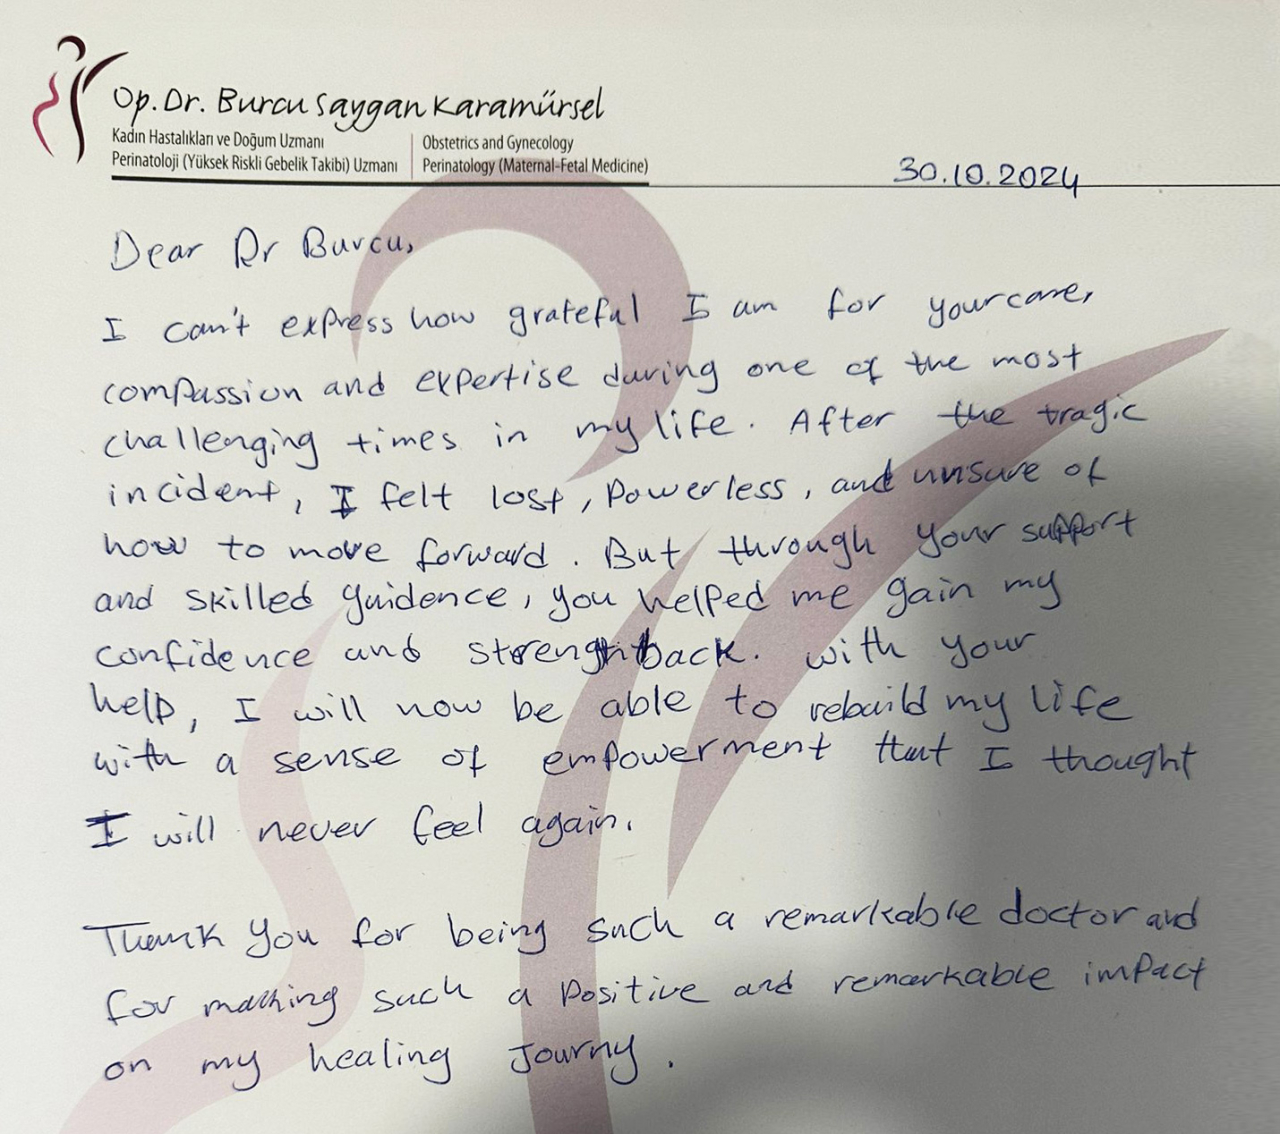 Op. Dr. Burcu Saygan Karamürsel
Kadın Hastalıkları ve Doğum Uzmanı
Perinatoloji (Yüksek Riskli Gebelik Takibi) Uzmanı
Obstetrics and Gynecology
Perinatology (Maternal-Fetal Medicine)
30.10.2024
Dear Dr Burcu,
I can't express how grateful I am for your care,
compassion and expertise during one of the most
challenging times in my life. After the tragic
incident, I felt lost, powerless, and unsure of
how to move forward. But through your support
and skilled guidence, you helped me gain my
confidence and strenght back. with your
help, I will now be able to rebuild my life
with a sense of empowerment that I thought
I will never feel again.
Thank you for being such a remarkable doctor and
for making such a positive and remarkable impact
on my healing Journy.